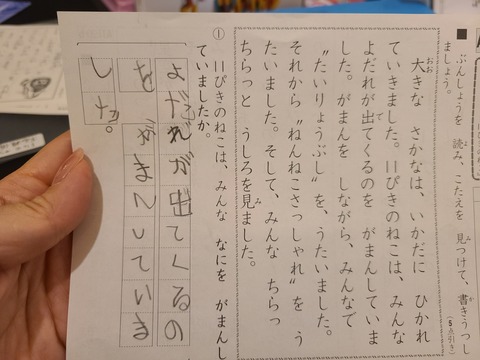 ■ ぶんしょうを 読み、こたえを 見つけて、書きうつし
ましょう。
(5点引き)
大きな さかなは、いかだに ひかれ
ていきました。11ぴきのねこは、みんな
よだれが出てくるのを がまんしていま
した。がまんを しながら、みんなで
“たいりょうぶし”を、うたいました。
それから“ねんねこさっしゃれ”を う
たいました。そして、みんな ちらっ
ちらっと うしろを見ました。
① 11ぴきのねこは、みんな なにを がまんし
ていましたか。
よだれが出てくるの
を がまんしていま
した。